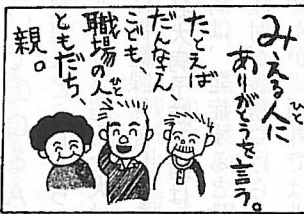 みえる人(ひと)に
ありがとうを言う。
たとえば
だんなさん、
こども、
職場の人(ひと)
ともだち、
親。